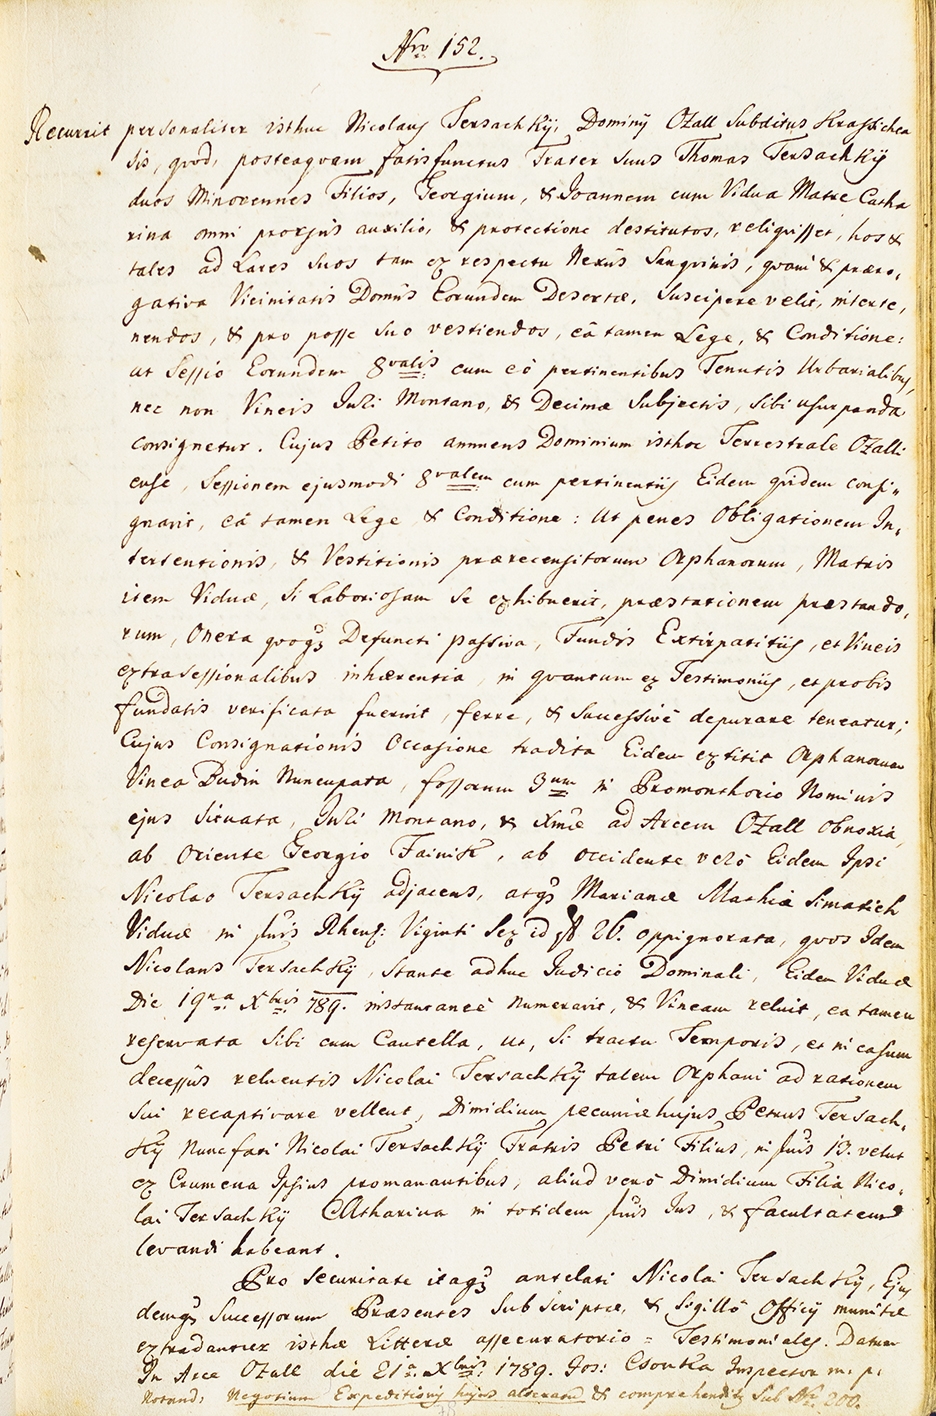 Nro 152.
Recurrit personaliter isthuc Nicolaus Tersachky, Dominij Ozall Subditus Krassichen
sis, quod, posteaquam fatis functus Frater Suus Thomas Tersachky
duos Minorennes Filios, Georgium, & Joannem cum Vidua Matre Catha
rina omni prorsus auxilio, & protectione destitutos, reliquisset, hos &
tales ad Lares Suos tam ex respectu Nexus Sanguinis, quam & præro,
gativa Vicinitatis Domûs Eorundem Desertæ, Suscipere velit, interte,
nendos, & pro posse Suo vestiendos, eâ tamen Lege, & Conditione:
ut Sessio Eorundem 8valis cum eò pertinentibus Tenutis Urbarialibus,
nec non Vineis Juri Montano, & Decimæ Subjectis, Sibi usurpanda
consignetur. Cujus Petito annuens Dominium isthoc Terrestrale Ozalli
ense, Sessionem ejusmodi 8valem cum pertinentijs Eidem quidem consi„
gnavit, eâ tamen Lege & Conditione: Ut penes Obligationem In,
tertentionis, & Vestitionis prærecensitorum Orphanorum, Matris
item Viduæ, Si Laboriosam Se exhibuerit, præstationem præstando,
rum, Onera quoq3 Defuncti passiva, Fundis Extirpatitijs, et Vineis
extrasessionalibus inhærentia, in quantum ex Testimonijs, et probis
fundatis verificata fuerint, ferre, & Successivè depurare teneatur;
Cujus Consignationis Occasione tradita Eidem extitit Orphanorum
Vinea Budin Nuncupata, fossorum 3um in Promonthorio Nominis
ejus Situata, Juri Montano, & Xmæ ad Arcem Ozall Obnoxia,
ab Oriente Georgio Fainik, ab Occidente verò Eidem Ipsi
Nicolao Tersachky adjacens, atq3 Marianæ Mathiæ Simatich
Viduæ in fluis Rhens: Viginti Sex id est 26. oppignorata, quos Idem
Nicolaus Tersachky, Stante adhuc Judicio Dominali, Eidem Viduæ
Die 19na Xbris 789. instantaneè Numeravit, & Vineam reluit, ea tamen
reservata Sibi cum Cautella, ut, Si tractu Temporis, et in casum
decessûs reluentis Nicolai Tersachky talem Orphani ad rationem
Sui recaptivare vellent, Dimidium pecuniæ hujus Petrus Tersach,
ky Nunc fati Nicolai Tersachky Fratris Petri Filius, in fluis 13. velut
ex Crumena Ipsius promanantibus, aliud verò Dimidium Filia Nico,
lai Tersachky Catharina in totidem fluis Jus, & facultatem
levandi habeant.
Pro Securitate itaq3 antelati Nicolai Tersachky, Ejus
demq3 Successorum Præsentes Subscriptæ, & Sigillô Officij munitæ
extradantur isthæ Litteræ assecuratorio = Testimoniales. Datum
In Arce Ozall die 21a Xbris 1789. Jos: Csonka Inspector m. p.
Notand: Negotium Expeditionis hujus alteratum & comprehenditur Sub Nro 200.